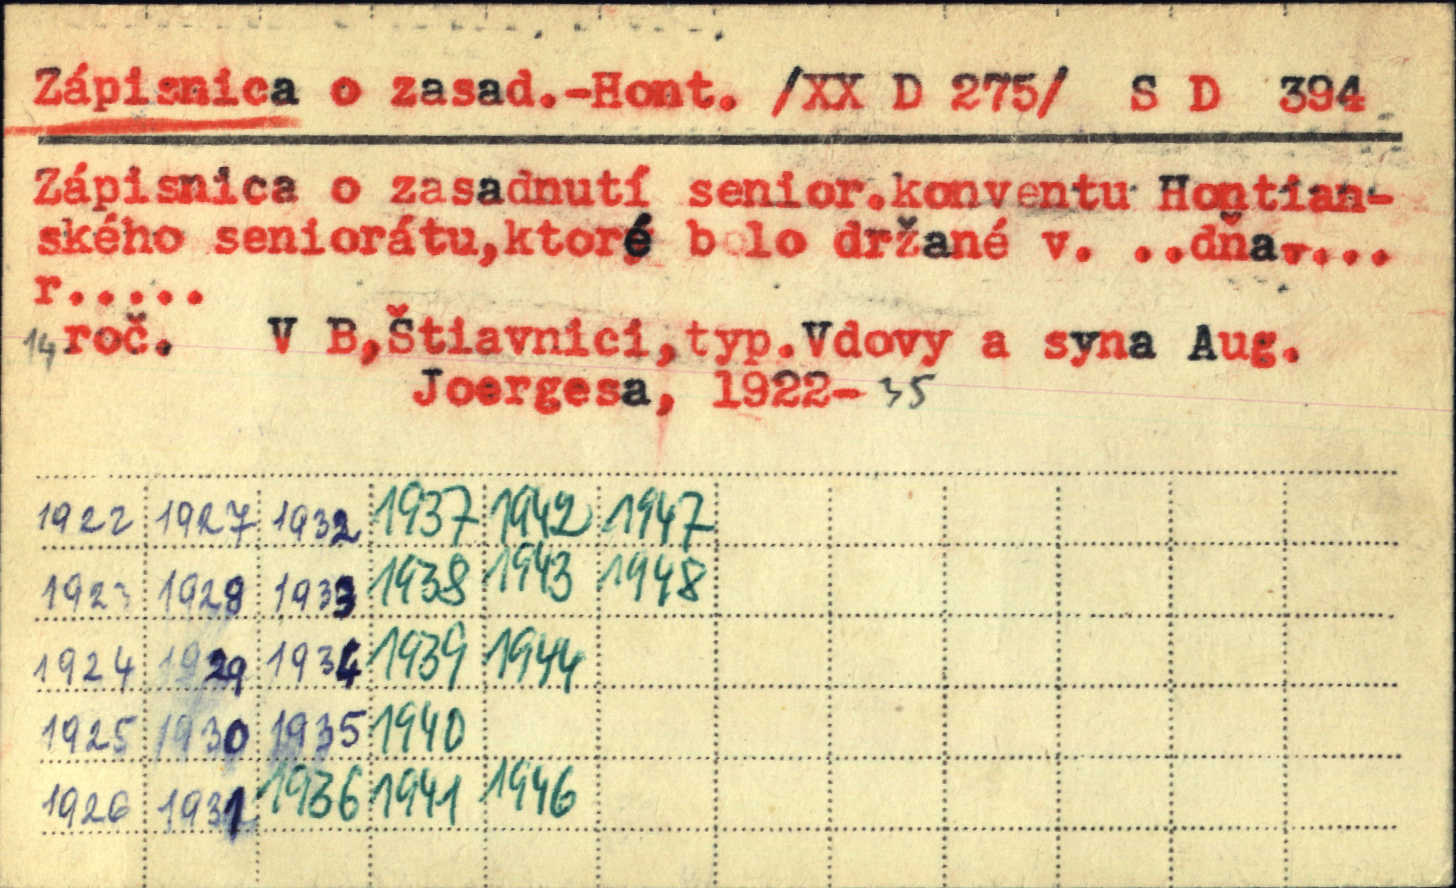 Zápisnica o zasad.-Hont. /XX D 275/ S D 394
Zápisnica o zasadnutí senior.konventu Hontian-
ského seniorátu,ktoré bolo držané v. ..dňa....
r.....
14 roč. V B,Štiavnici,typ.Vdovy a syna Aug.
Joergesa, 1922-35
1922 1927 1932 1937 1942 1947
1923 1928 1933 1938 1943 1948
1924 1929 1934 1939 1944
1925 1930 1935 1940
1926 1931 1936 1941 1946